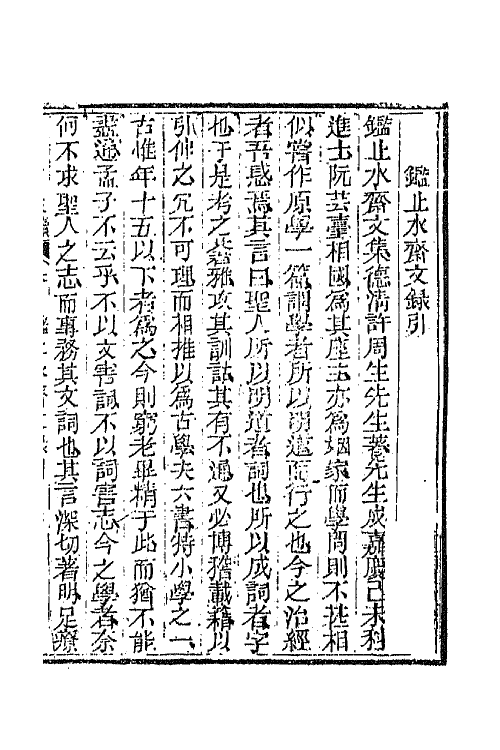 鑑止水齋文録引
鑑止水齋文集德淸許周生先生著先生成嘉慶己未科
進士阮芸臺相國爲其座主亦爲姻家而學問則不甚相
似嘗作原學一篇謂學者所以明道而行之也今之治經
者吾惑焉其言曰聖人所以明道者詞也所以成詞者字
也于是考之蒼雅攻其訓詁其有不通又必博稽載籍以
引伸之冗不可理而相推以爲古學夫六書特小學之一
古惟年十五以下者爲之今則窮老畢精于此而猶不能
盡通孟子不云乎不以文害詞不以詞害志今之學者奈
何不求聖人之志而專務其文詞也其言深切著明足療